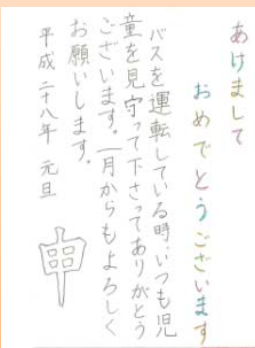 あけまして
おめでとうございます
バスを運転している時、いつも児
童を見守って下さってありがとう
ございます。一月からもよろしく
お願いします。
平成二十八年 元旦
申